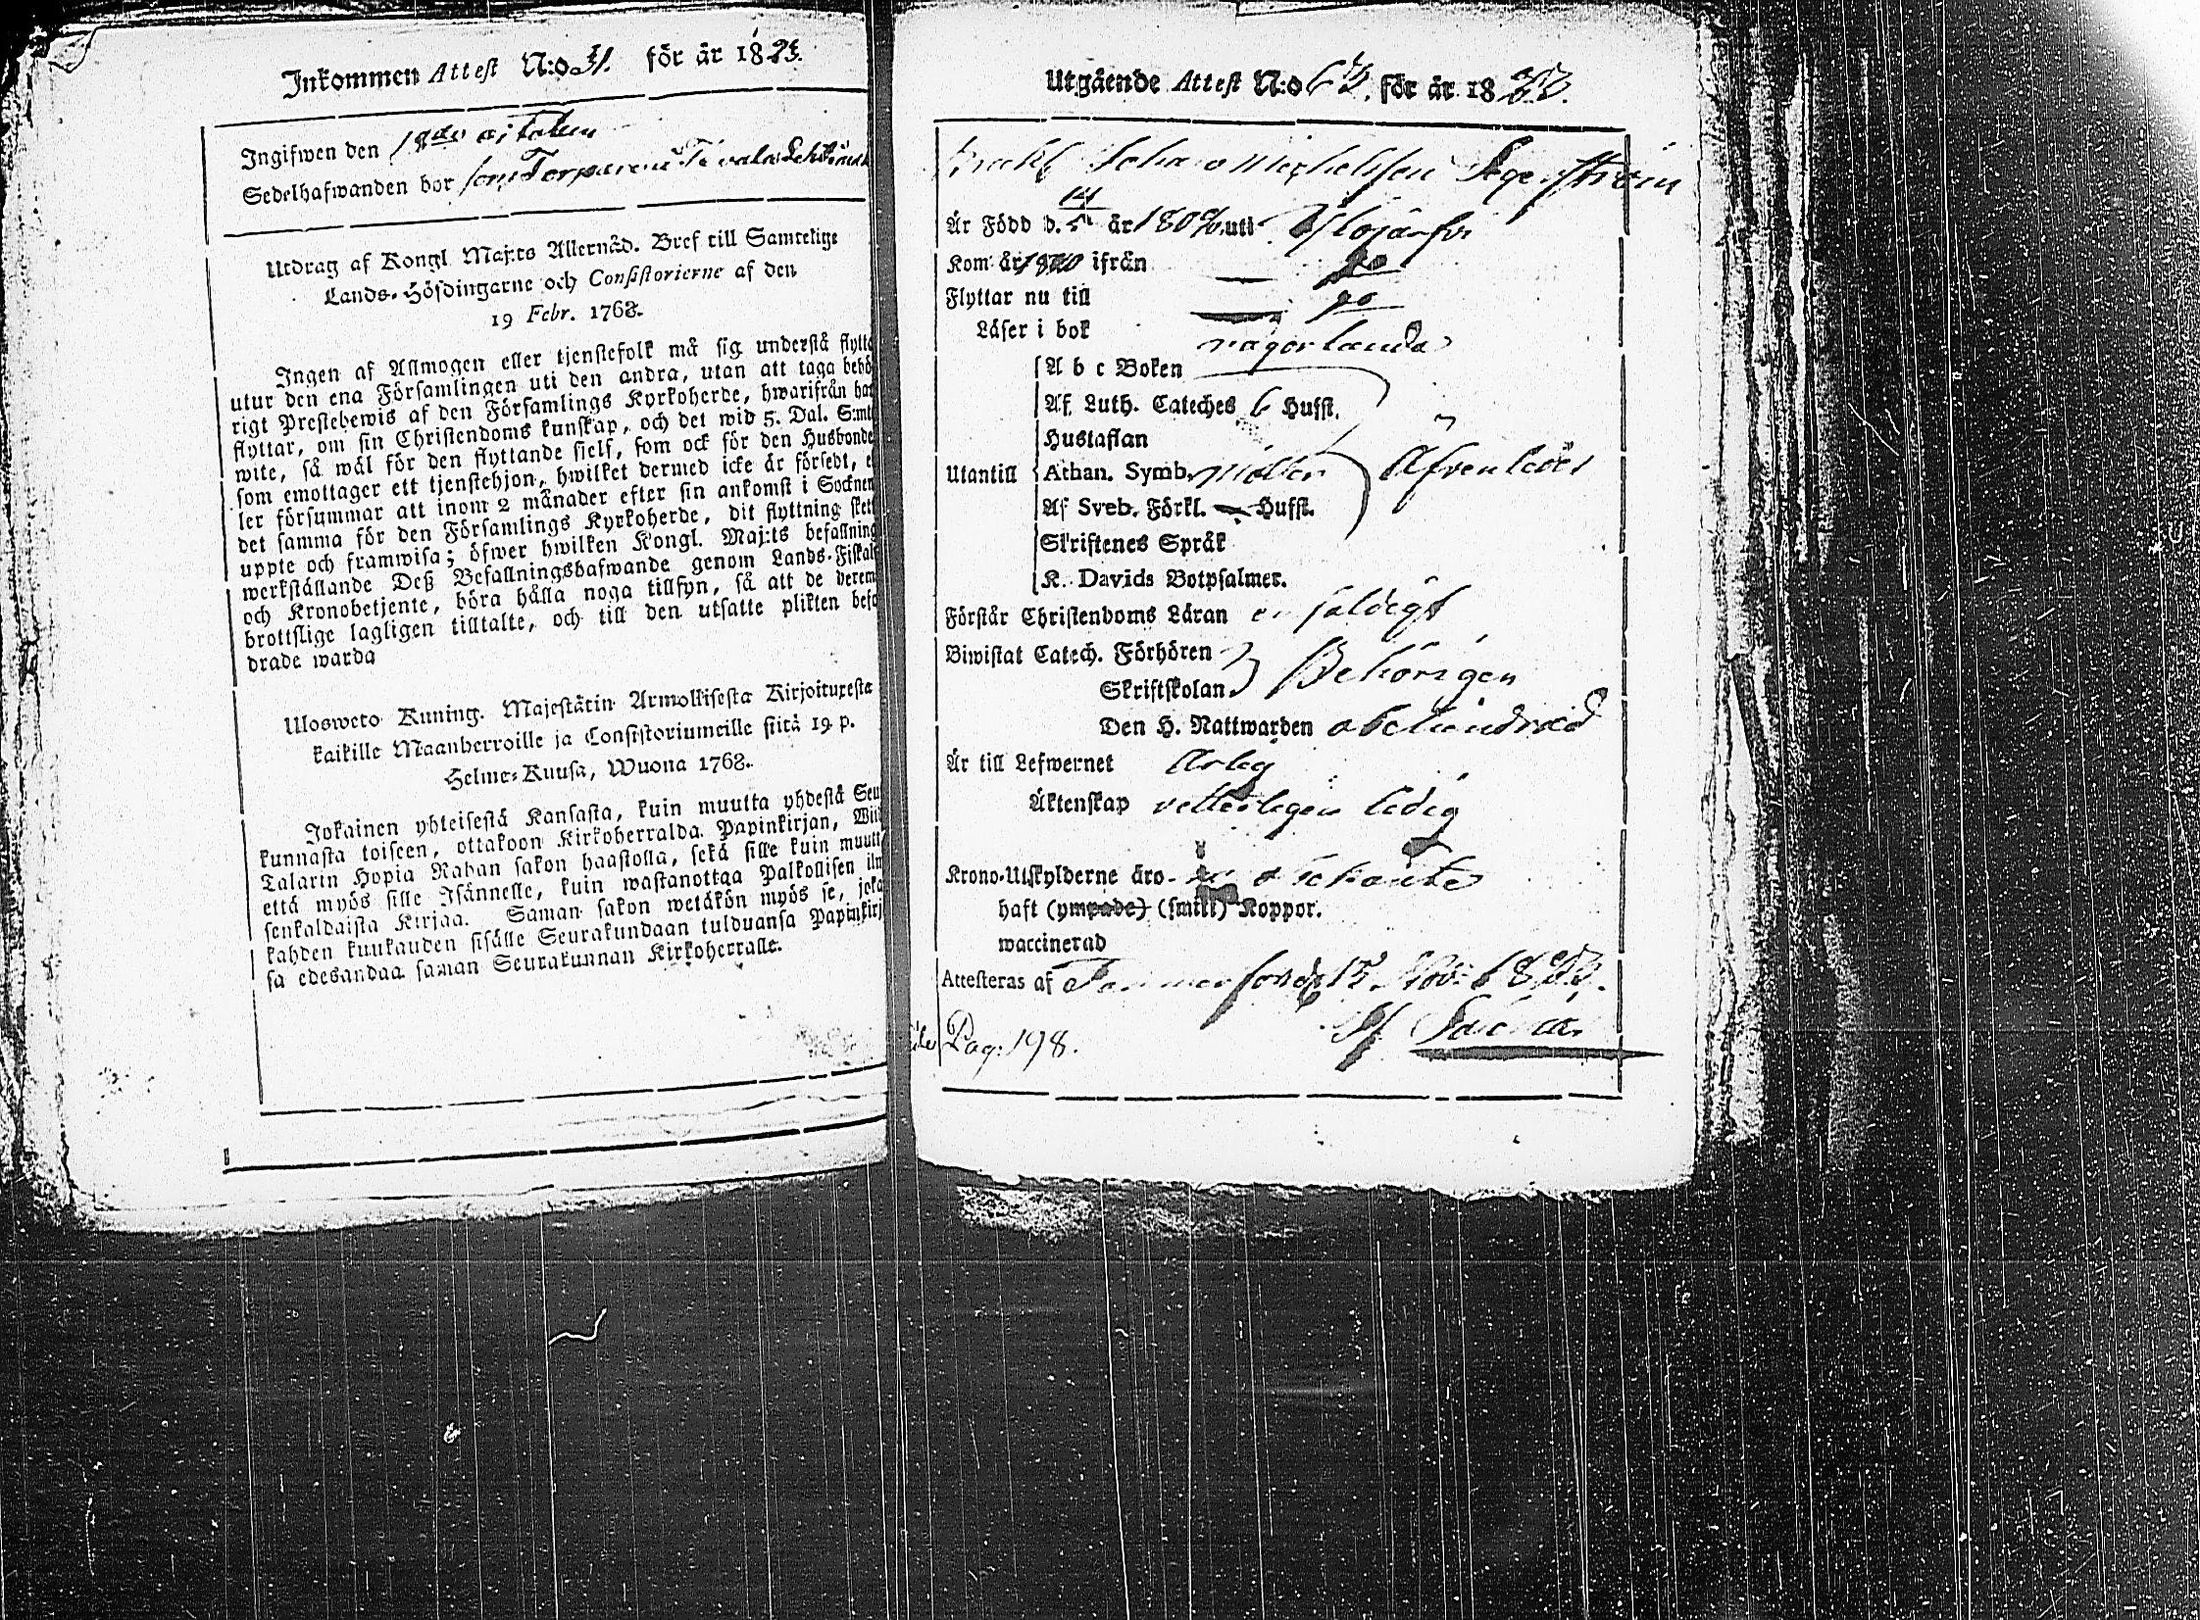 Inkommen Attest N:o 31. för år 1823.
Ingifwen den 18de
Sedelhafwanden bor hos Torparen
Utdrag af Kongl Maj:ts Allernåd. Bref till Samtelige
Lands-Höfdingarne och Consistorierne af den
19 Febr. 1768.
Ingen af Allmogen eller tjenstefolk må sig understå flytta
utur den ena Församlingen uti den andra, utan att taga behö-
rigt Prestebewis af den Församlings Kyrkoherde, hwarifrån han
flyttar, om sin Christendoms kunskap, och det wid 5. Dal. S:mts
wite, så wäl för den flyttande sielf, som ock för den Husbonde
som emottager ett tjenstehjon, hwilket dermed icke är försedt, el
ler försummar att inom 2 månader efter sin ankomst i Socknen
det samma för den Församlings Kyrkoherde, dit flyttning skett
uppte och framwisa; öfwer hwilken Kongl. Maj:ts befallning
werkställande Deß Befallningshafwande genom Lands-Fiskaler
och Kronobetjente, böra hålla noga tillsyn, så att de derem
brottslige lagligen tilltalte, och till den utsatte plikten befo
drade warda
Ulosweto Kuning. Majestätin Armollisesta Kirjoituxesta
kaikille Maanherroille ja Consistoriumeille siitä 19 p.
Helme-Kuusa, Wuona 1768.
Jokainen yhteisestä Kansasta, kuin muutta yhdestä Seu
kunnasta toiseen, ottakoon Kirkoherralda Papinkirjan, Wii
Talarin Hopia Rahan sakon haastolla, sekä sille kuin muutta
että myös sille Isännelle, kuin wastanottaa Palkollisen ilm
senkaldaista Kirjaa. Saman sakon wetäkön myös se, joka
kahden kuukauden sisälle Seurakundaan tulduansa Papinkirj
sa edesandaa saman Seurakunnan Kirkoherralle.
Utgående Attest N:o 63. för år 1823.
Johan Michelsson Segerström
Är Född d. 14/5 år 180 uti Ylöjärfvi
Kom år 1820 ifrån — do
Flyttar nu till — do
Läser i bok någorlunda
A b c Boken
Af Luth. Cateches 6 Hufst.
Hustaflan
Utantill Athan. Symb. Äfvenledes
Af Sveb. Förkl. — Hufst.
Skriftenes Språk
K. Davids Botpsalmer.
Förstår Christendoms Läran enfaldigt
Biwistat Catech. Förhören
Skriftskolan Behörigen
Den H. Nattwarden obehindrad
Är till Lefwernet Ärlig
Äktenskap vetterligen ledig
Krono-Utskylderne äro
haft (ympade) (smitt) Koppor.
waccinerad
Attesteras af Tammerfors d 15 Nov: 1823.
Pag: 198.